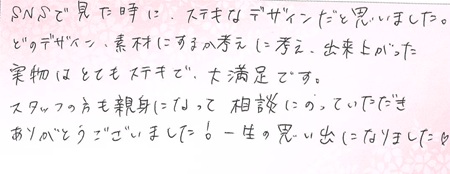 SNSで見た時に、ステキなデザインだと思いました。
どのデザイン、素材にするか考えに考え、出来上がった
実物はとてもステキで、大満足です。
スタッフの方も親身になって相談にのっていただき
ありがとうございました!一生の思い出になりました♡